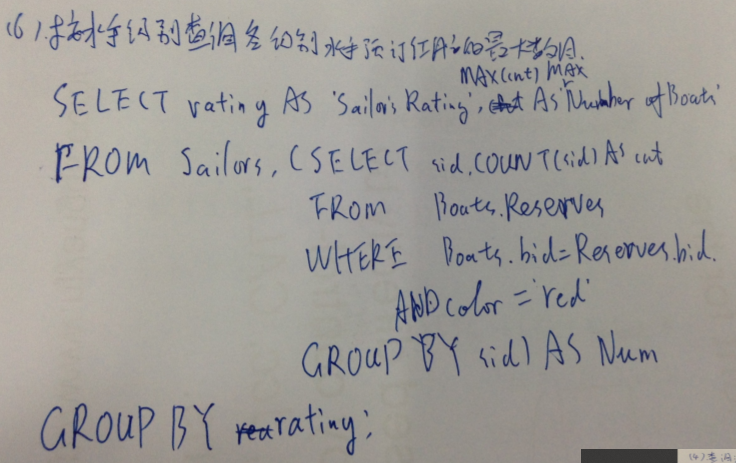 (6).按水手级别查询各级别水手预订红船的最大数目.
MAX(cnt) MAX
SELECT rating AS 'Sailor's Rating', cnt AS 'Number of Boats'
FROM Sailors, (SELECT sid,COUNT(sid) AS cnt
FROM Boats,Reserves
WHERE Boats.bid=Reserves.bid.
AND color='red'
GROUP BY sid) AS Num
GROUP BY rating;